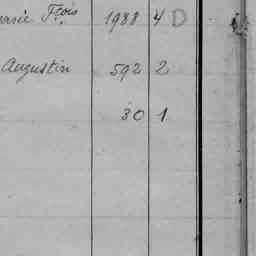 Fçois 1988 4 D
Augustin 592 2
30 1